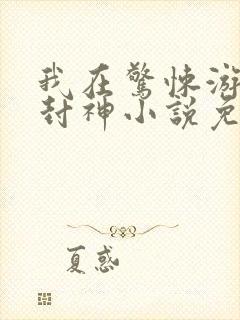 我在驚悚游
封神小說免
夏惑